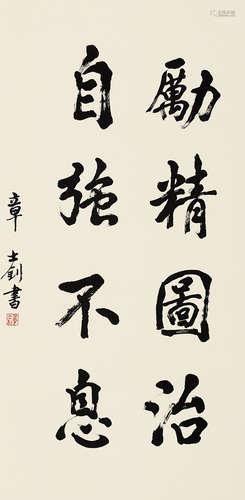 勵精圖治
自強不息
章士釗書